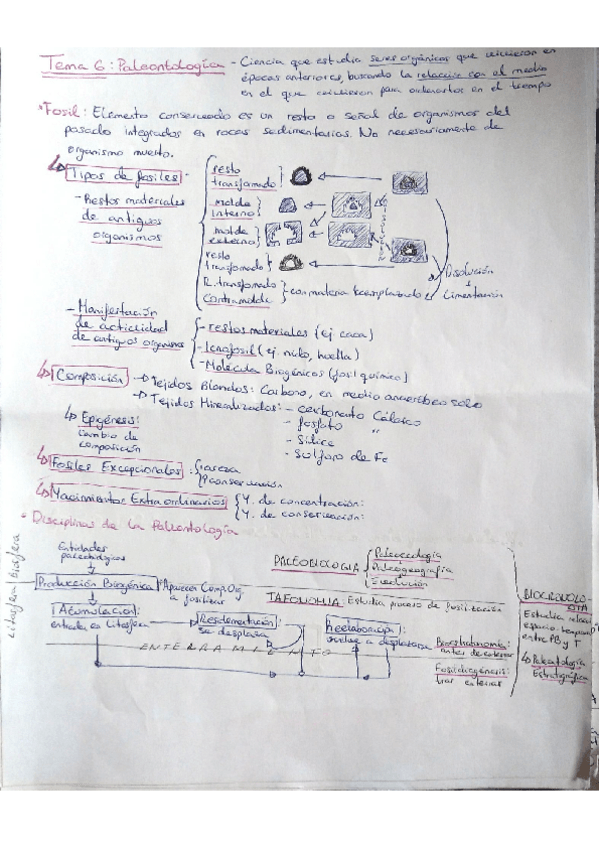 Tema 6: Paleontología - Ciencia que estudia seres orgánicos que vivieron en
épocas anteriores, buscando la relación con el medio
en el que vivieron para ordenarlos en el tiempo
Fósil: Elemento conservado es un resto o señal de organismos del
pasado integrados en rocas sedimentarias. No necesariamente de
organismo muerto.
Tipos de fósiles
- Restos materiales
de antiguos
organismos
resto
transformado
molde
interno
molde
externo
resto
transformado
R. transformado
Contramolde
con materia reemplazada
Disolución
y
Cimentación
- Manifestación
de actividad
de antiguos organismos
- restos materiales (ej caca)
- Icnofosil (ej nido, huella)
- Molécula Biogénicos (fosil químico)
Composición → Tejidos Blandos: Carbono, en medio anaeróbico solo
→ Tejidos Mineralizados: - carbonato Cálcico
- fosfato "
- Sílice
- Sulfuro de Fe
Epigénesis:
Cambio de
composición
Fósiles Excepcionales: rareza
Pconservación
Yacimientos Extraordinarios Y. de concentración:
Y. de conservación:
Disciplinas de la Paleontología
Litosfera biosfera
Entidades
paleobiológicas
Producción Biogénica: Aparecen Comp.Org
a fosilizar
Acumulación:
entrada en Litosfera
Resedimentación:
se desplaza
Reelaboración:
vuelve a desplazarse
ENTERRAMIENTO
PALEOBIOLOGIA
Paleoecología
Paleogeografía
Evolución
TAFONOMIA: Estudia proceso de fosilización
Bioestratinomía:
antes de enterrar
Fosildiagénesis:
tras enterrar
BIOCRONOLO-
GIA
Estudia relac
espacio temporal
entre PB y T
Paleontología
Estratigráfica